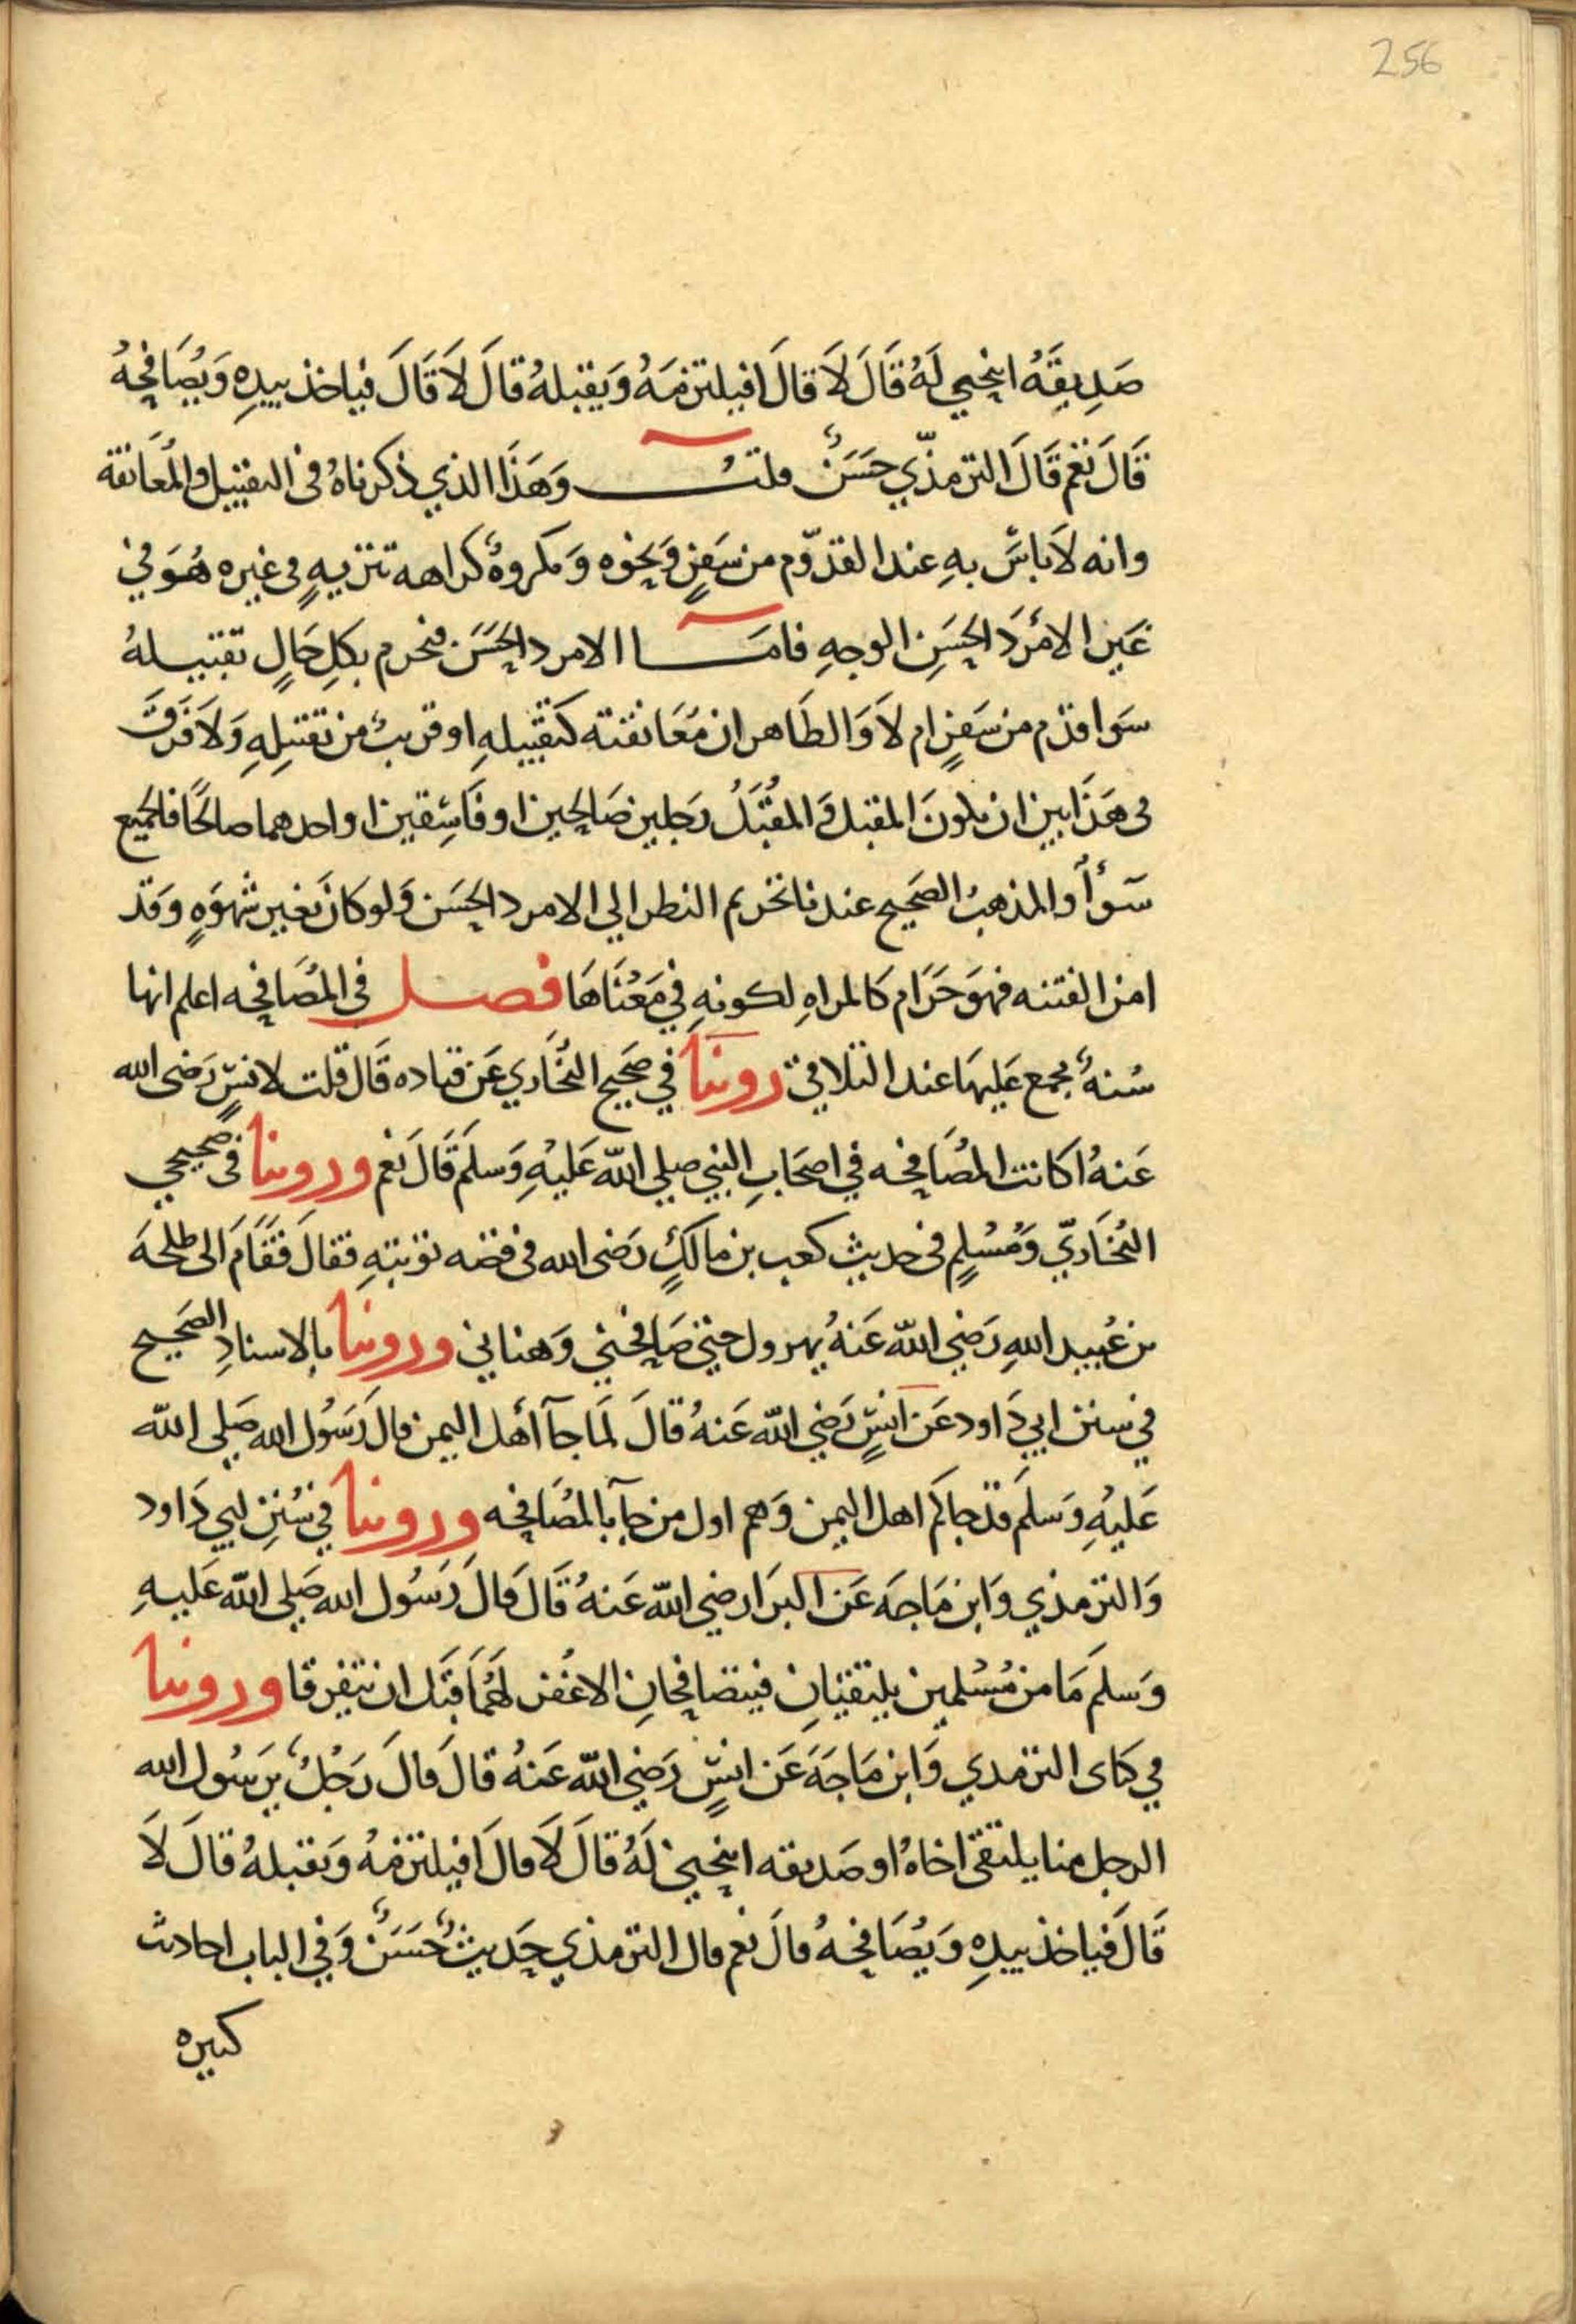 256
صَدِيقَهُ اينحني لَهُ قَالَ لَا قَالَ افيلتزمَهُ وَيقبلهُ قالَ لَا قَالَ فياخذ بيدِهِ وَيُصَافحهُ
قَالَ نعَم قَالَ الترمذّي حَسَنٌ قلت وَهَذَا الذي ذكرناهُ في التقبيل والمُعَانقة
وانه لَا باسَ بهِ عند القدّوم من سَفرٍ وَنحوه وَمكروهٌ كراهه تنزيهٍ في غيره هُوَ في
غَير الامْرَد الحَسَنِ الوجهِ فامَا الامرد الحَسَن فيحرم بكلِ حَالٍ تقبيلهُ
سَوا قدم من سَفرٍ ام لَا وَالظَاهر ان مُعَانقته كتقبيلهِ او قريبٌ من تقبيلِهِ وَلَا فَرَقَ
في هَذَا بين ان يكونَ المقبل وَالمقُبَّلُ رَجلين صَالحين او فَاسِقين او احدهما صالحًا فالجَميع
سَوأ والمذهبُ الصَحيح عندنا تحريم النظر الي الامرد الحَسَن وَلو كانَ بغير شَهوَهٍ وَقد
امن الفتنه فهوَ حَرَام كالمراهِ لكونهِ في مَعْنَاهَا فصل في المُصَافحه اعلم انها
سُنهٌ مجمع عَليهَا عند التلاقي روينا في صَحيح البُخَاري عَن قتاده قَال قلت لانسٍ رَضي الله
عَنهُ اكانت المُصَافحه في اصحَابِ النبي صلي الله عَليهِ وَسلمَ قَالَ نعَم وروينا في صحيحي
البُخَاريّ وَمُسْلِمٍ في حديث كعب بن مالكٍ رَضي الله في قصه توبتهِ فقالَ فَقَامَ الي طلحهَ
بن عُبيد اللهِ رَضي الله عَنهُ يهرول حتي صَافحني وَهناني وروينا بالاسنادِ الصَحيح
في سنن ابي دَاود عَن انسٍ رَضي الله عَنهُ قالَ لمَا جآ أهل اليمن قالَ رَسُول الله صَلي الله
عَليهِ وَسلمَ قد جاكم اهل اليمن وَهم اول من جآ بالمُصَافحه وروينا في سُننِ ابي دَاود
وَالترمذي وَابن مَاجَه عَن البرَا رضي الله عَنهُ قَال قالَ رَسُول الله صَلي الله عَليهِ
وَسلمَ مَا من مُسْلمين يلتقيَانِ فيتصَافحَانِ الا غُفرَ لهُمَا قَبَل ان يتفرقا وروينا
في كتاى الترمدي وَابن مَاجَهَ عَن انسٍ رَضي الله عَنهُ قالَ قالَ رَجُلٌ يرَسُول الله
الرجل منا يلتقي اخاهُ او صَديقه اينحني لَهُ قالَ لَا قالَ افيلتزمهُ وَيقبلهُ قالَ لَا
قَالَ فَياخذ بيدِهِ وَيُصَافحهُ قالَ نعم قال الترمذي حَديثٌ حَسَنٌ وَفي الباب احاديث
كثيره